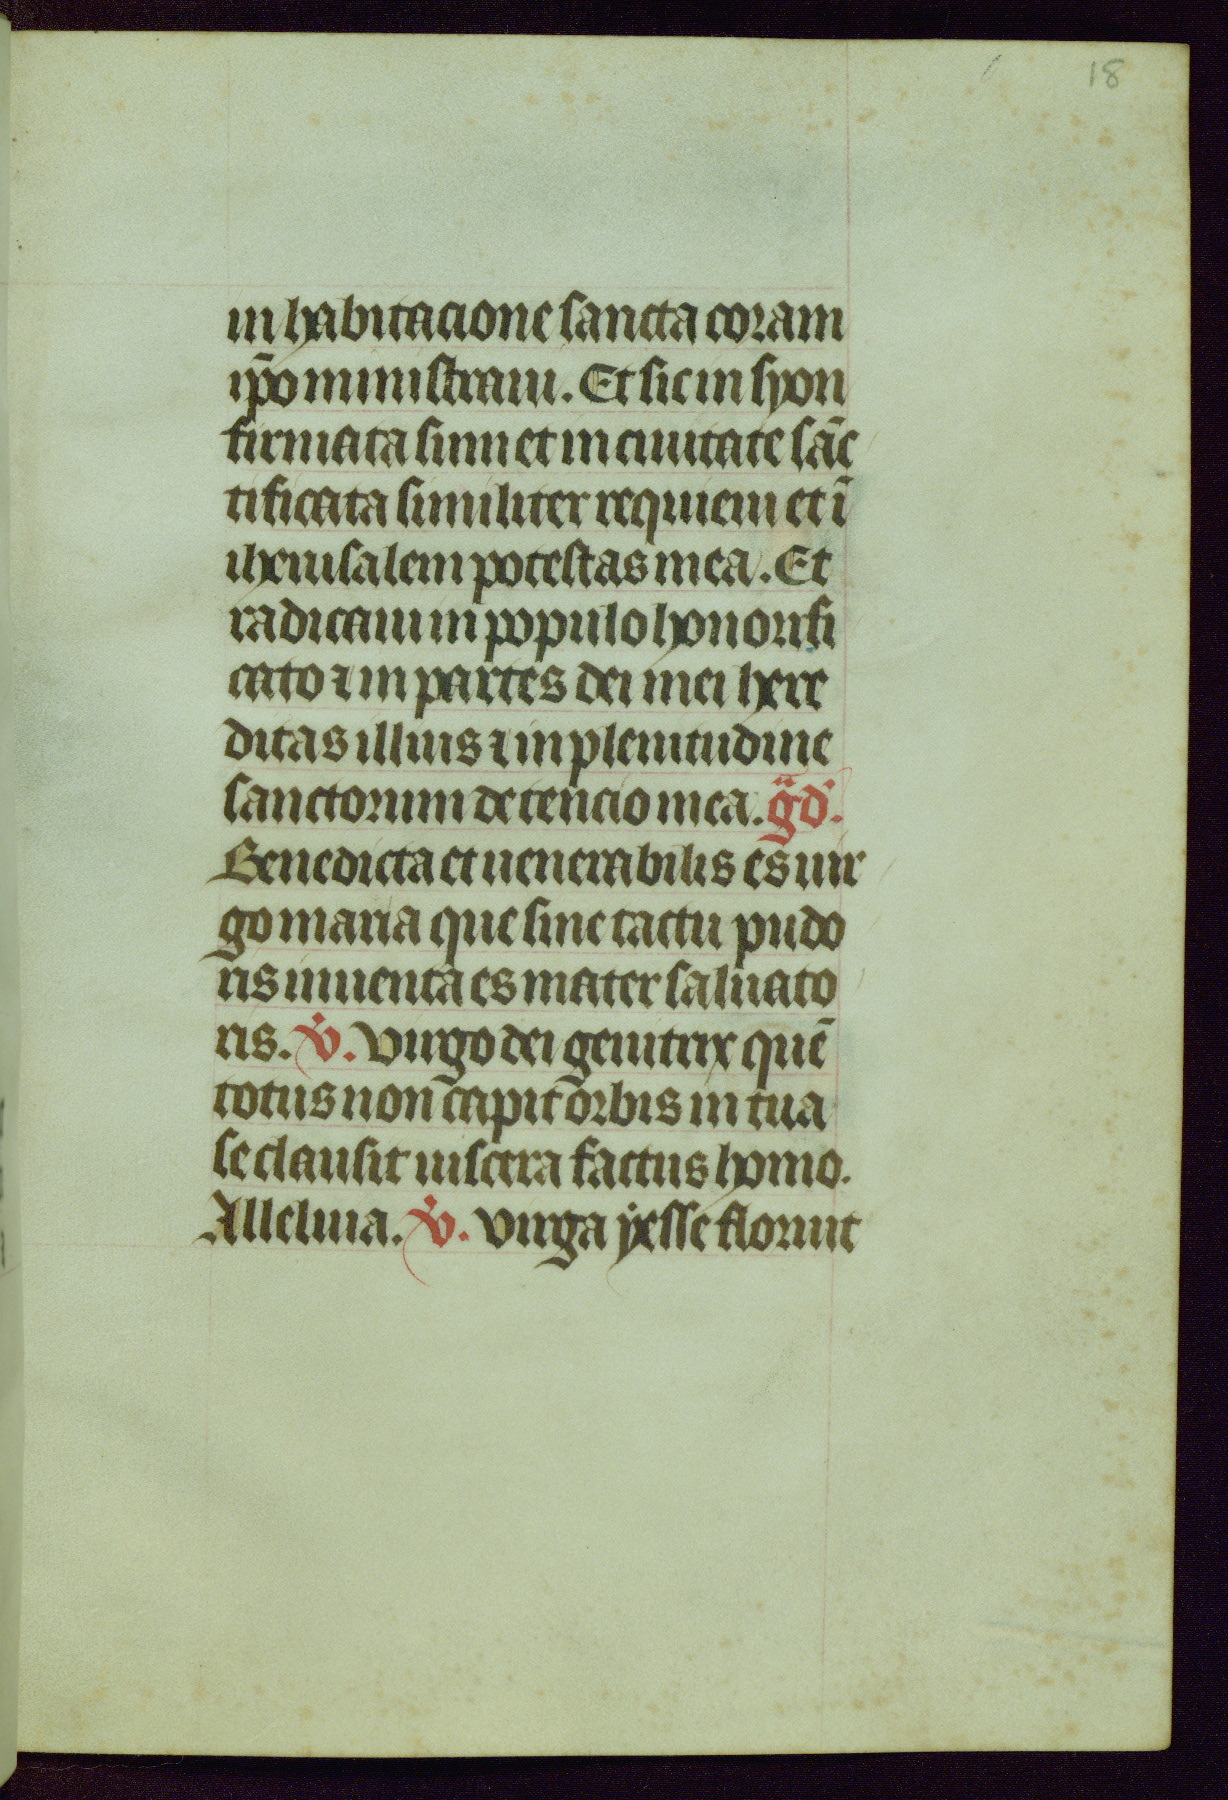 18
in habitacione sancta coram
ip̄o ministraui. Et sic in syon
firmata sum et in ciuitate sāc
tificata similiter requieui et ī
iherusalem potestas mea. Et
radicaui in populo honorifi
cato ⁊ in partes dei mei here
ditas illius ⁊ in plenitudine
sanctorum detencio mea. gd̄.
Benedicta et uenerabilis es uir
go maria que sine tactu pudo
ris inuenta es mater saluato
ris. ℣. Virgo dei genitrix quē
totus non capit orbis in tua
se clausit uiscera factus homo.
Alleluia. ℣. Virga yesse floruit